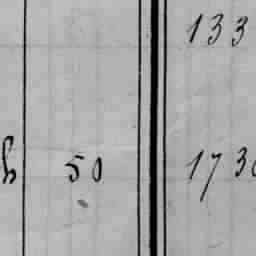 133
50 173